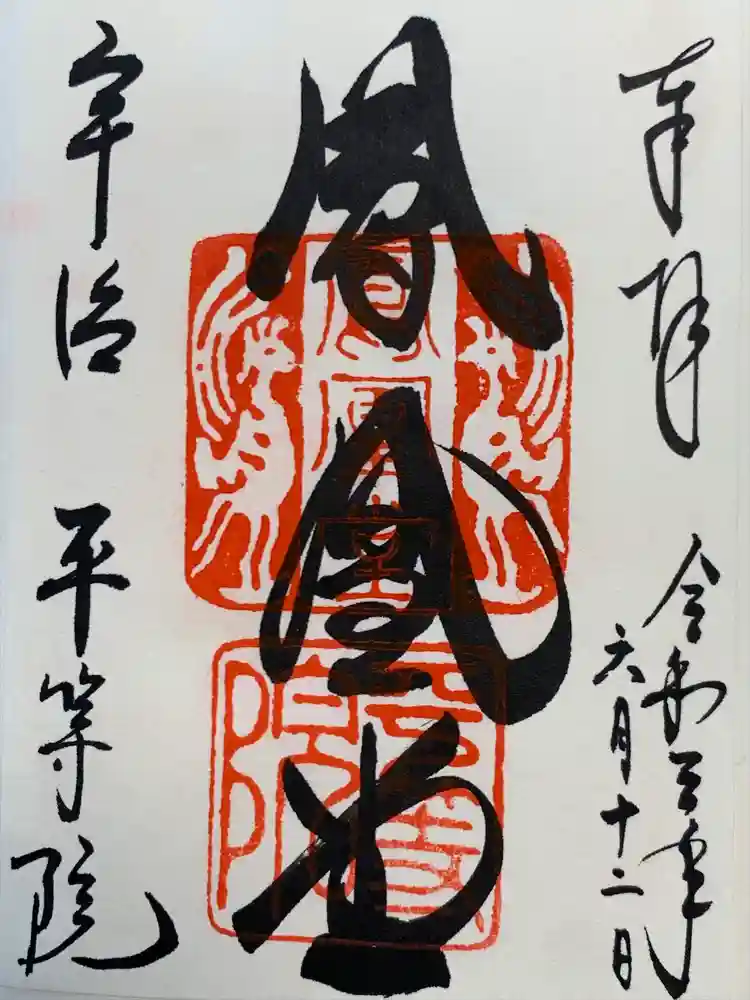 奉拝
令和三年
六月十二日
鳳凰堂
鳳凰堂
平等院
宇治
平等院